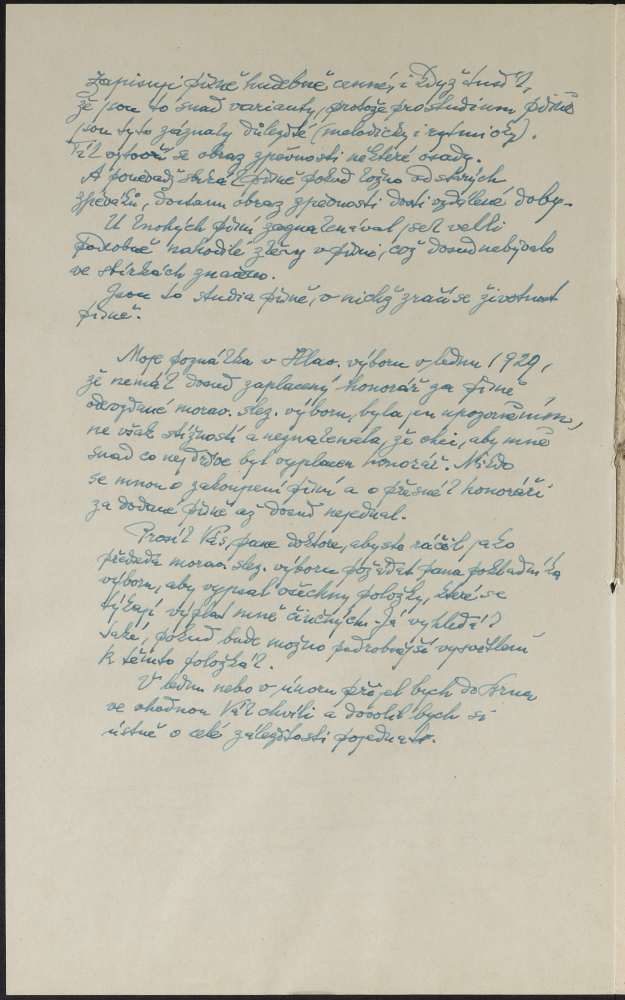 Zapisuji písně hudebně cenné, i když tuším,
že jsou to snad varianty, protože pro studium písně
jsou tyto záznamy důležité (melodicky i rytmicky).
Tím vytvoří se obraz zpěvnosti některé osady.
A poněvadž sbírám písně pokud možno od starých
zpěváků, dostanu obraz zpěvnosti dosti vzdálené doby.
U mnohých písní zaznamenával jsem velmi
podrobně nahodilé změny v písni, což dosud nebývalo
ve sbírkách značeno.
Jsou to studia písně, v nichž zračí se životnost
písně.
Moje poznámka v Hlav. výboru v lednu 1929,
že nemám dosud zaplacený honorář za písně
odevzdané morav. slez. výboru, byla jen upozorněním,
ne však stížností a neznamenala, že chci, aby mně
snad co nejdříve byl vyplacen honorář. Nikdo
se mnou o zakoupení písní a o přesném honoráři
za dodané písně až dosud nejednal.
Prosím Vás, pane doktore, abyste ráčil jako
předseda morav. slez. výboru požádat pana pokladníka
výboru, aby vypsal všechny položky, které se
týkají výplat mně činěných. Já vyhledám
také, pokud bude možno podrobnější vysvětlení
k těmto položkám.
V lednu nebo v únoru přijel bych do Brna
ve vhodnou Vám chvíli a dovolil bych si
ústně o celé záležitosti pojednati.